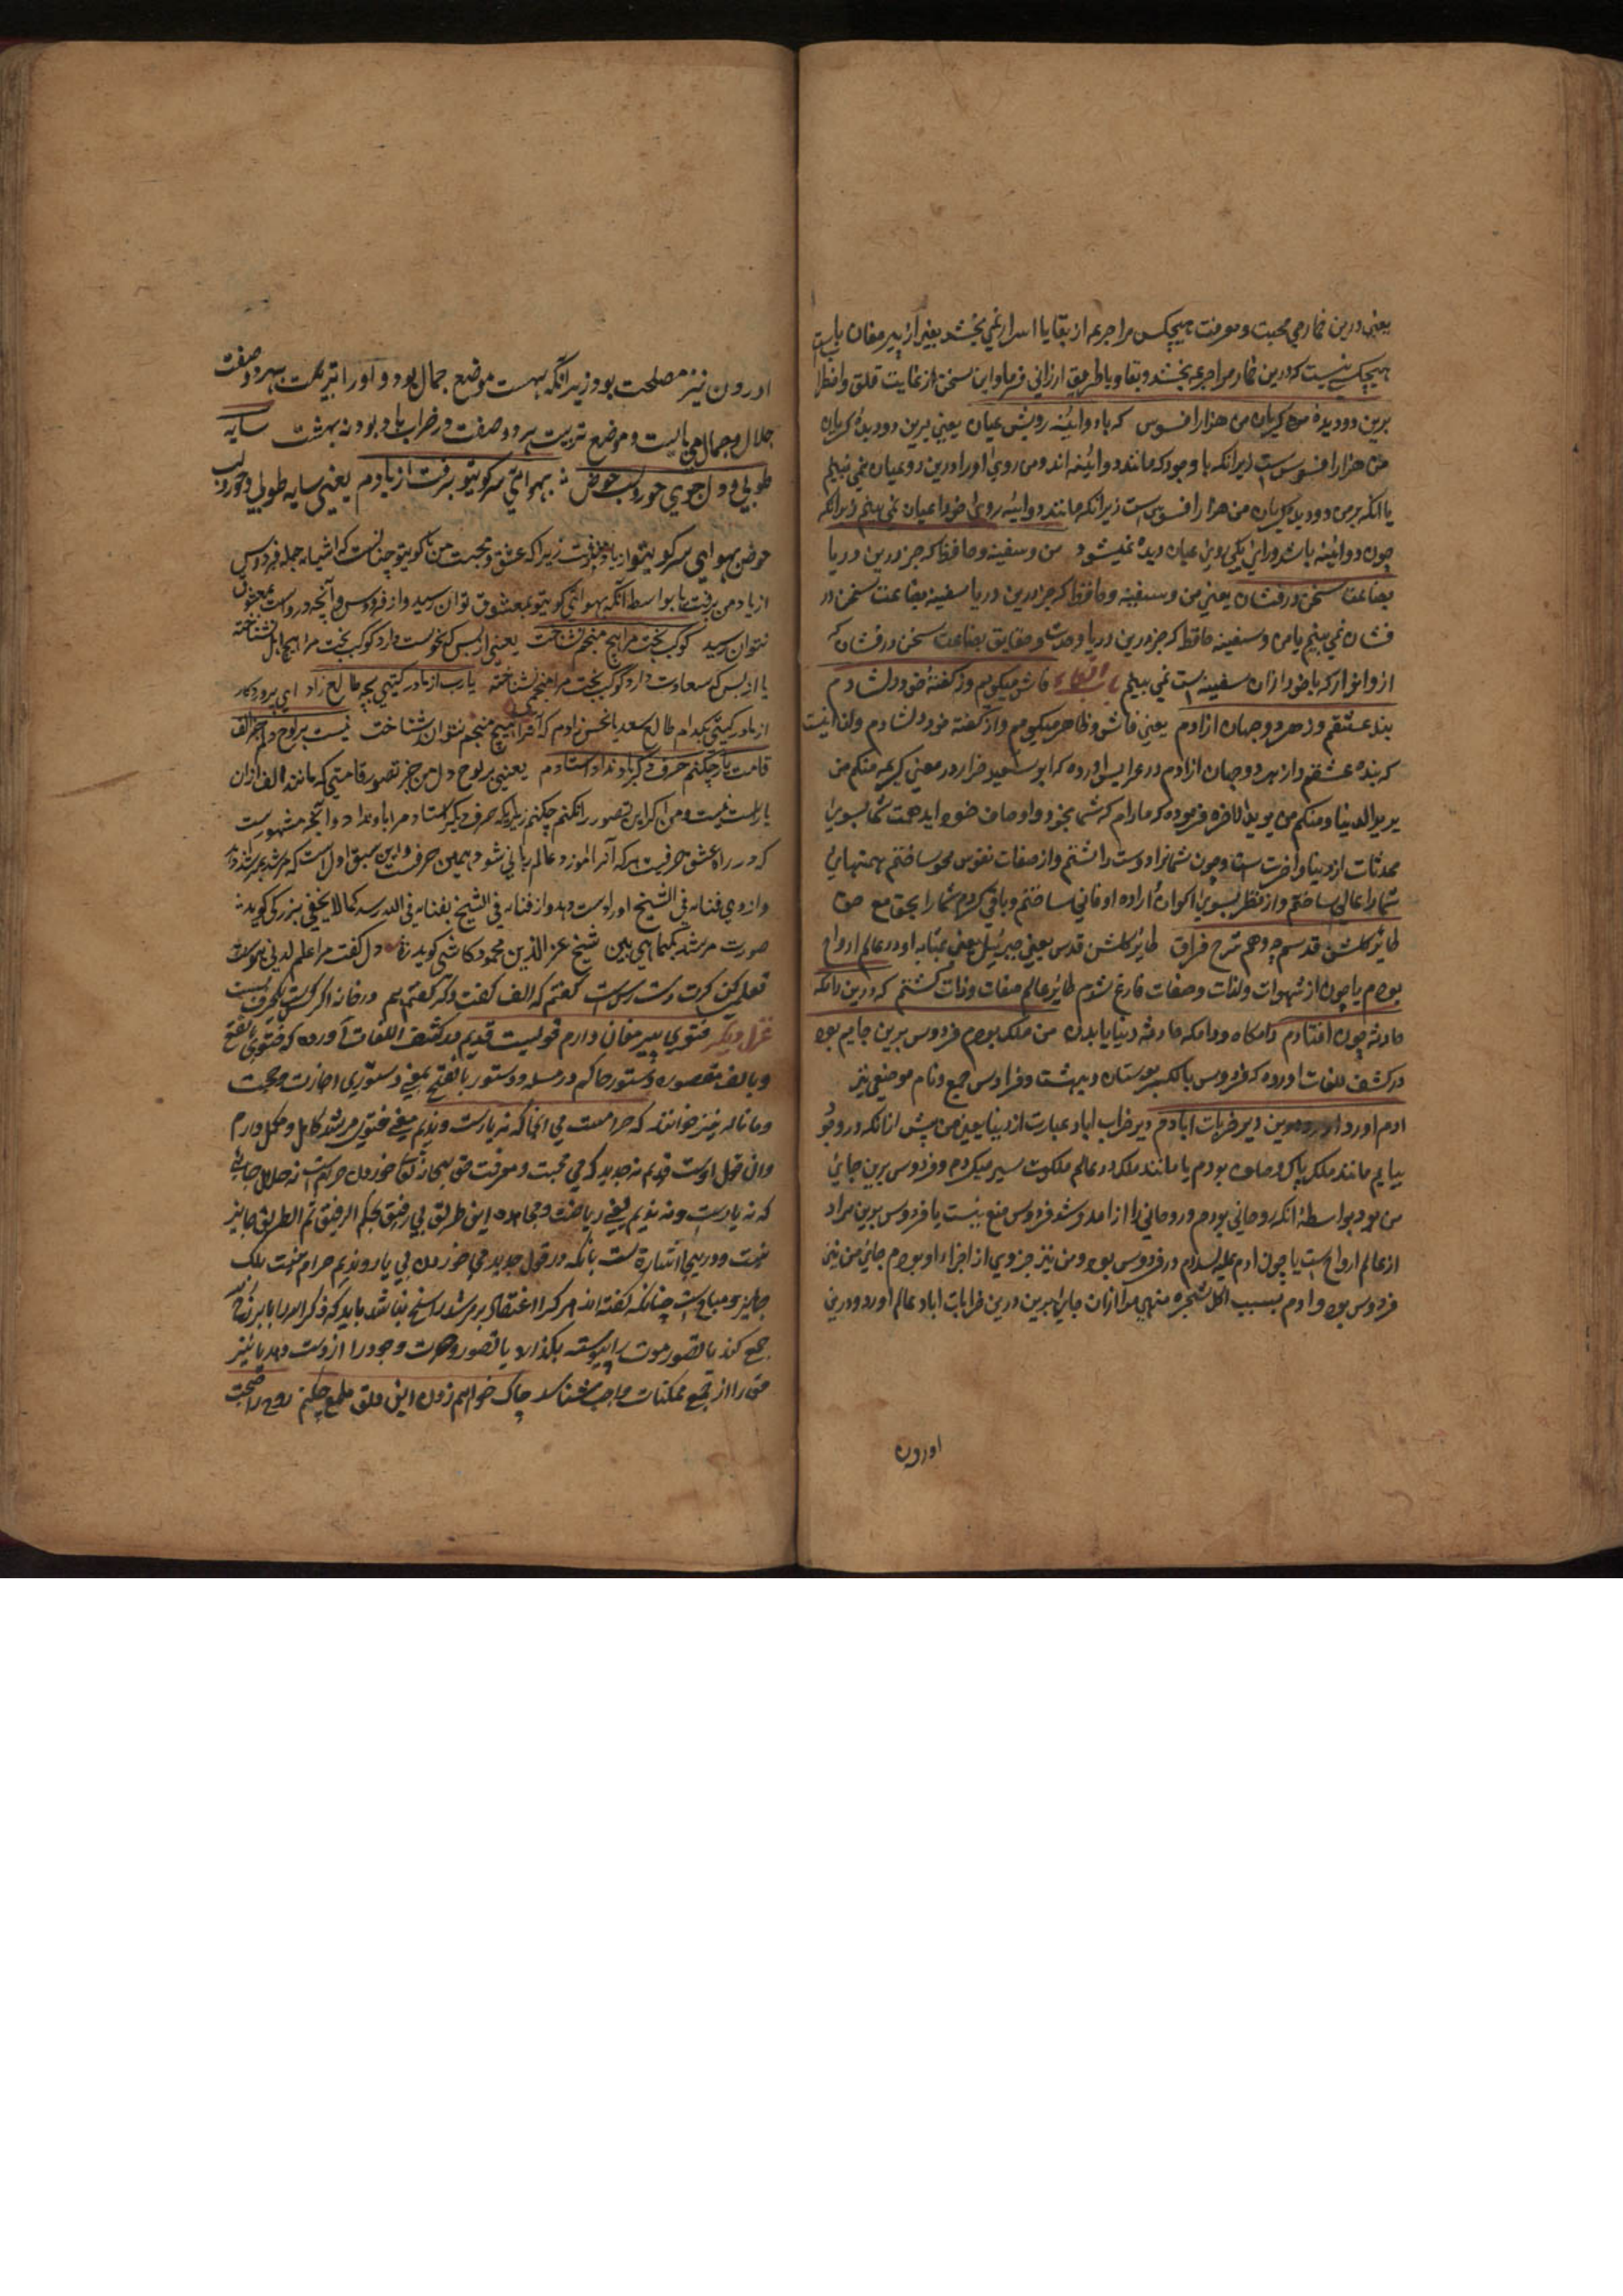 یعنی درین خمار می محبت و معرفت هیچکس مرا جرعه از بقایا اسرار نمی بخشد بغیر از پیر مغان یا
هیچکس نیست که درین خمار مرا جرعه بخشد و بقا و یا طریق ارزانی فرماید این سخن از غایت قلق و اضطرا
برین دو دیده من هزار افسوس که با دو آئینه رویش عیان یعنی برین دو دیده گریان
من هزار افسوس است زیرانکه با وجودکه مانند دو آئینه اند و من روی او را درین رو عیان نمی بینم
یا آنکه برین دو دیده گریان من هزار افسوس است زیرانکه مانند دو آئینه روی خود را عیان نمی بینم زیرانکه
چون دو آئینه باشد عیان دیده نمیشود من و سفینه و حافظ که جز درین دریا
بضاعت سخن درفشان یعنی من و سفینه و حافظ که جز درین دریا سفینه بضاعت سخن در
فشان نمی بینم یا من و سفینه حافظ که جز درین دریا وحدت و حقایق بضاعت سخن درفشان که
از و انوار که با خود از آن سفینه است نمی بینم فاش میگویم و از گفته خود دلشادم
بنده عشقم و ز هر دو جهان آزادم یعنی فاش و ظاهر میگویم و از گفته خود دلشادم و آن اینست
که بنده عشقم و از هر دو جهان آزادم در عرایس آورده که ابو سعید خراز در معنی کریمه منکم من
یرید الدنیا و منکم من یرید الاخرة فرموده که مادام که شما بخود و اوصاف خود اید همت شما بسوی
محدثات از دنیا و آخرت است و چون شما را دوست داشتم و از صفات نفوس محو ساختم همتهای
شما را عالی ساختم و از نظر بسوی اکوان اراده او فانی ساختم و باقی کردم شما را بحق مع حق
طایر گلشن قدسم چه دهم شرح فراق طایر گلشن قدس یعنی جبرئیل یعنی بمثابه او در عالم ارواح
بودم یا چون از شهوات و لذات و صفات فارغ شدم طایر عالم صفات و ذات گشتم که درین دامگه
حادثه چون افتادم دامگاه و دامگه حادثه دنیا یا بدن من ملک بودم فردوس برین جایم بود
در کشف اللغات آورده که فردوس بالکسر بوستان و بهشت و فرادیس جمع و نام موضعی نیز
آدم آورد درین دیر خراب آبادم دیر خراب آباد عبارت از دنیا یعنی من پیش از آنکه در وجود
بیایم مانند ملک پاک و صاف بودم یا مانند ملک در عالم ملکوت سیر میکردم و فردوس برین جای
من بود بواسطه آنکه روحانی بودم و روحانی را از آمد و شد فردوس منع نیست یا فردوس برین مراد
از عالم ارواح است یا چون آدم علیه السلام در فردوس بود و من نیز جزوی از اجزاء او بودم جای من نیز
فردوس بود و آدم بسبب اکل شجره منهی مرا از آن جای برین درین خرابات آباد عالم آورد و درین
آوردن
آوردن نیز مصلحت بود زیرانکه بهشت موضع جمال بود و او را تربیت بهر دو صفت
جلال و جمال می بایست و موضع تربیت بهر دو صفت در خراب آباد بود نه بهشت سایه
طوبی و دلجوی حور و لب حوض بهوای سر کوی تو برفت از یادم یعنی سایه طوبی و حور و لب
حوض بهوای سر کوی تو از یاد برفت زیراکه عشق و محبت من با کوی تو چنانست که اشیاء جمله فردوس
از یاد من برفت یا بواسطه آنکه بهوای کوی تو بمعشوق توان رسید و از فردوس و آنچه دروست بمعشوق
نتوان رسید کوکب بخت مرا هیچ منجم نشناخت یعنی از بس که نحوست دارد کوکب بخت مرا هیچ اهل نشناخته
یا از بس که سعادت دارد کوکب بخت مرا منجم نشناخته یا رب از مادر گیتی بچه طالع زادم ای پروردگار
از مادر گیتی بکدام طالع سعد یا نحس زادم که آنرا هیچ منجم نتوان شناخت نیست بر لوح دلم جز الف
قامت یار چکنم حرف دگر یاد نداد استادم یعنی بر لوح دل من جز تصور قامتی که مانند الف از آن
یار است نیست و من اگر این تصور را نکنم چکنم زیراکه حرف دیگر استاد مرا یاد نداد و آنچه مشهورست
که در راه عشق حرفیست هرکه آنرا آموزد عالم ربانی شود همین حرفست و این سبق اول است که مرشد بمرشد دهد
و از وی فنا فی الشیخ او را دست دهد و از فنا فی الشیخ بفنا فی الله رسد کما لا یخفی بزرگی گوید
صورت مرشد کماهی بین شیخ عزالدین محمود کاشی گوید دل گفت مرا علم لدنی هوس است
تعلیم کن گرت دسترس است گفتم که الف گفت دگر گفتم هیچ در خانه اگر کس است یکحرف بس است
غزل دیگر فتوی پیر مغان دارم و قولیست قدیم در کشف اللغات آورده که فتوی بفتح
و بالف مقصوره دستور حاکم در مسئله و دستور بالفتح بمعنی دستوری اجازت و حجت
و مانا له نیز خوانند که حرامست می آنجا که نه یارست و ندیم یعنی فتوی مرشد کامل و مکمل دارم
و آن قول اوست قدیم نه جدید که می محبت و معرفت حق سبحانه تعالی خوردن حرامست نه حلال جای
که نه یارست و نه ندیم یعنی ریاضت و مجاهده این طریق بی رفیق بحکم الرفیق ثم الطریق جایز
نیست و درینجا اشارتست بآنکه در قول جدید می خوردن بی یار و ندیم حرام نیست بلک
جایز و مباح است چنانکه گفته اند هر کرا اعتقاد بر مرشد راسخ نباشد باید که ذکر الله را با برزخ
جمع کند یا تصور موت را پیوسته بگذارد یا تصور وحدت وجود را از دست دهد یا نیز
حق را از جمیع ممکنات واجب شناسد چاک خواهم زدن این دلق ملمع چکنم روح را صحبت